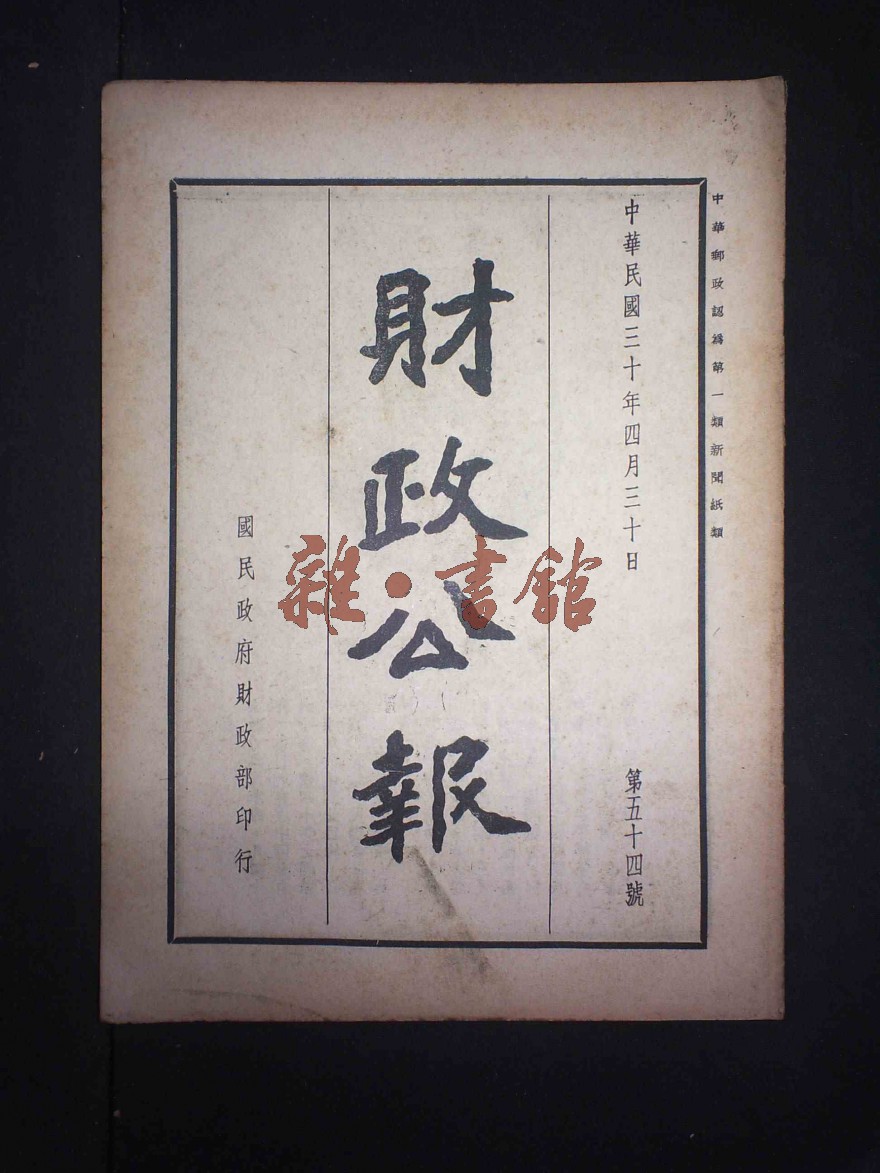 中華郵政認爲第一類新聞紙類
中華民國三十年四月三十日
第五十四號
財政公報
國民政府財政部印行
雜·書館